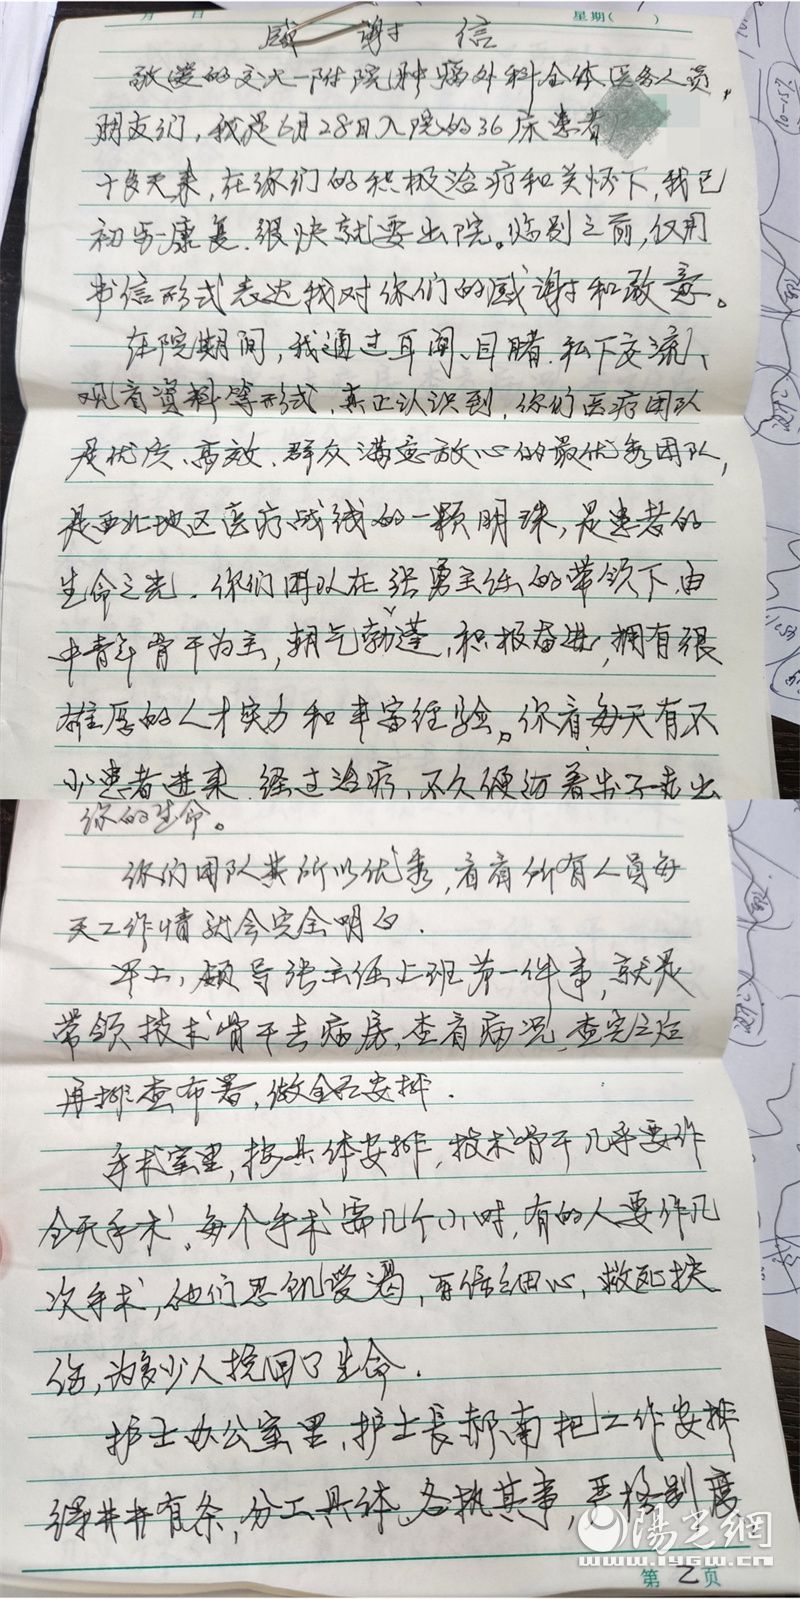 月 日 星期( )
感 谢 信
敬爱的交大一附院肿瘤外科全体医务人员,
朋友们，我是6月28日入院的36床患者
十多天来，在你们的积极治疗和关怀下，我已
初步康复.很快就要出院。临别之前，仅用
书信形式表达我对你们的感谢和敬意。
在院期间，我通过耳闻、目睹.私下交流、
观看资料等形式，真正认识到，你们医疗团队
是优质、高效、群众满意放心的最优秀团队，
是西北地区医疗战线的一颗明珠，是患者的
生命之光.你们团队在张勇主任的带领下，由
中青年骨干为主，朝气勃蓬，积极奋进，拥有很
雄厚的人才实力和丰富经验。你看每天有不
少患者进来.经过治疗，不久便
你的生命。
你们团队其所以优秀，看看所有人员每
天工作情就会完全明白.
早上，领导张主任上班第一件事，就是
带领技术骨干去病房，查看病况，查完之后
再排查布署，做全面安排.
手术室里，按具体安排，技术骨干几乎要作
全天手术，每个手术需几个小时，有的人要作几
次手术，他们忍饥受渴，再倦细心，救死扶
伤，为多少人挽回了生命.
护士办公室里，护士长郝南把工作安排
得井井有条，分工具体、各执其事，严格制度
陽光網
www.iygw.cn
第 2 页